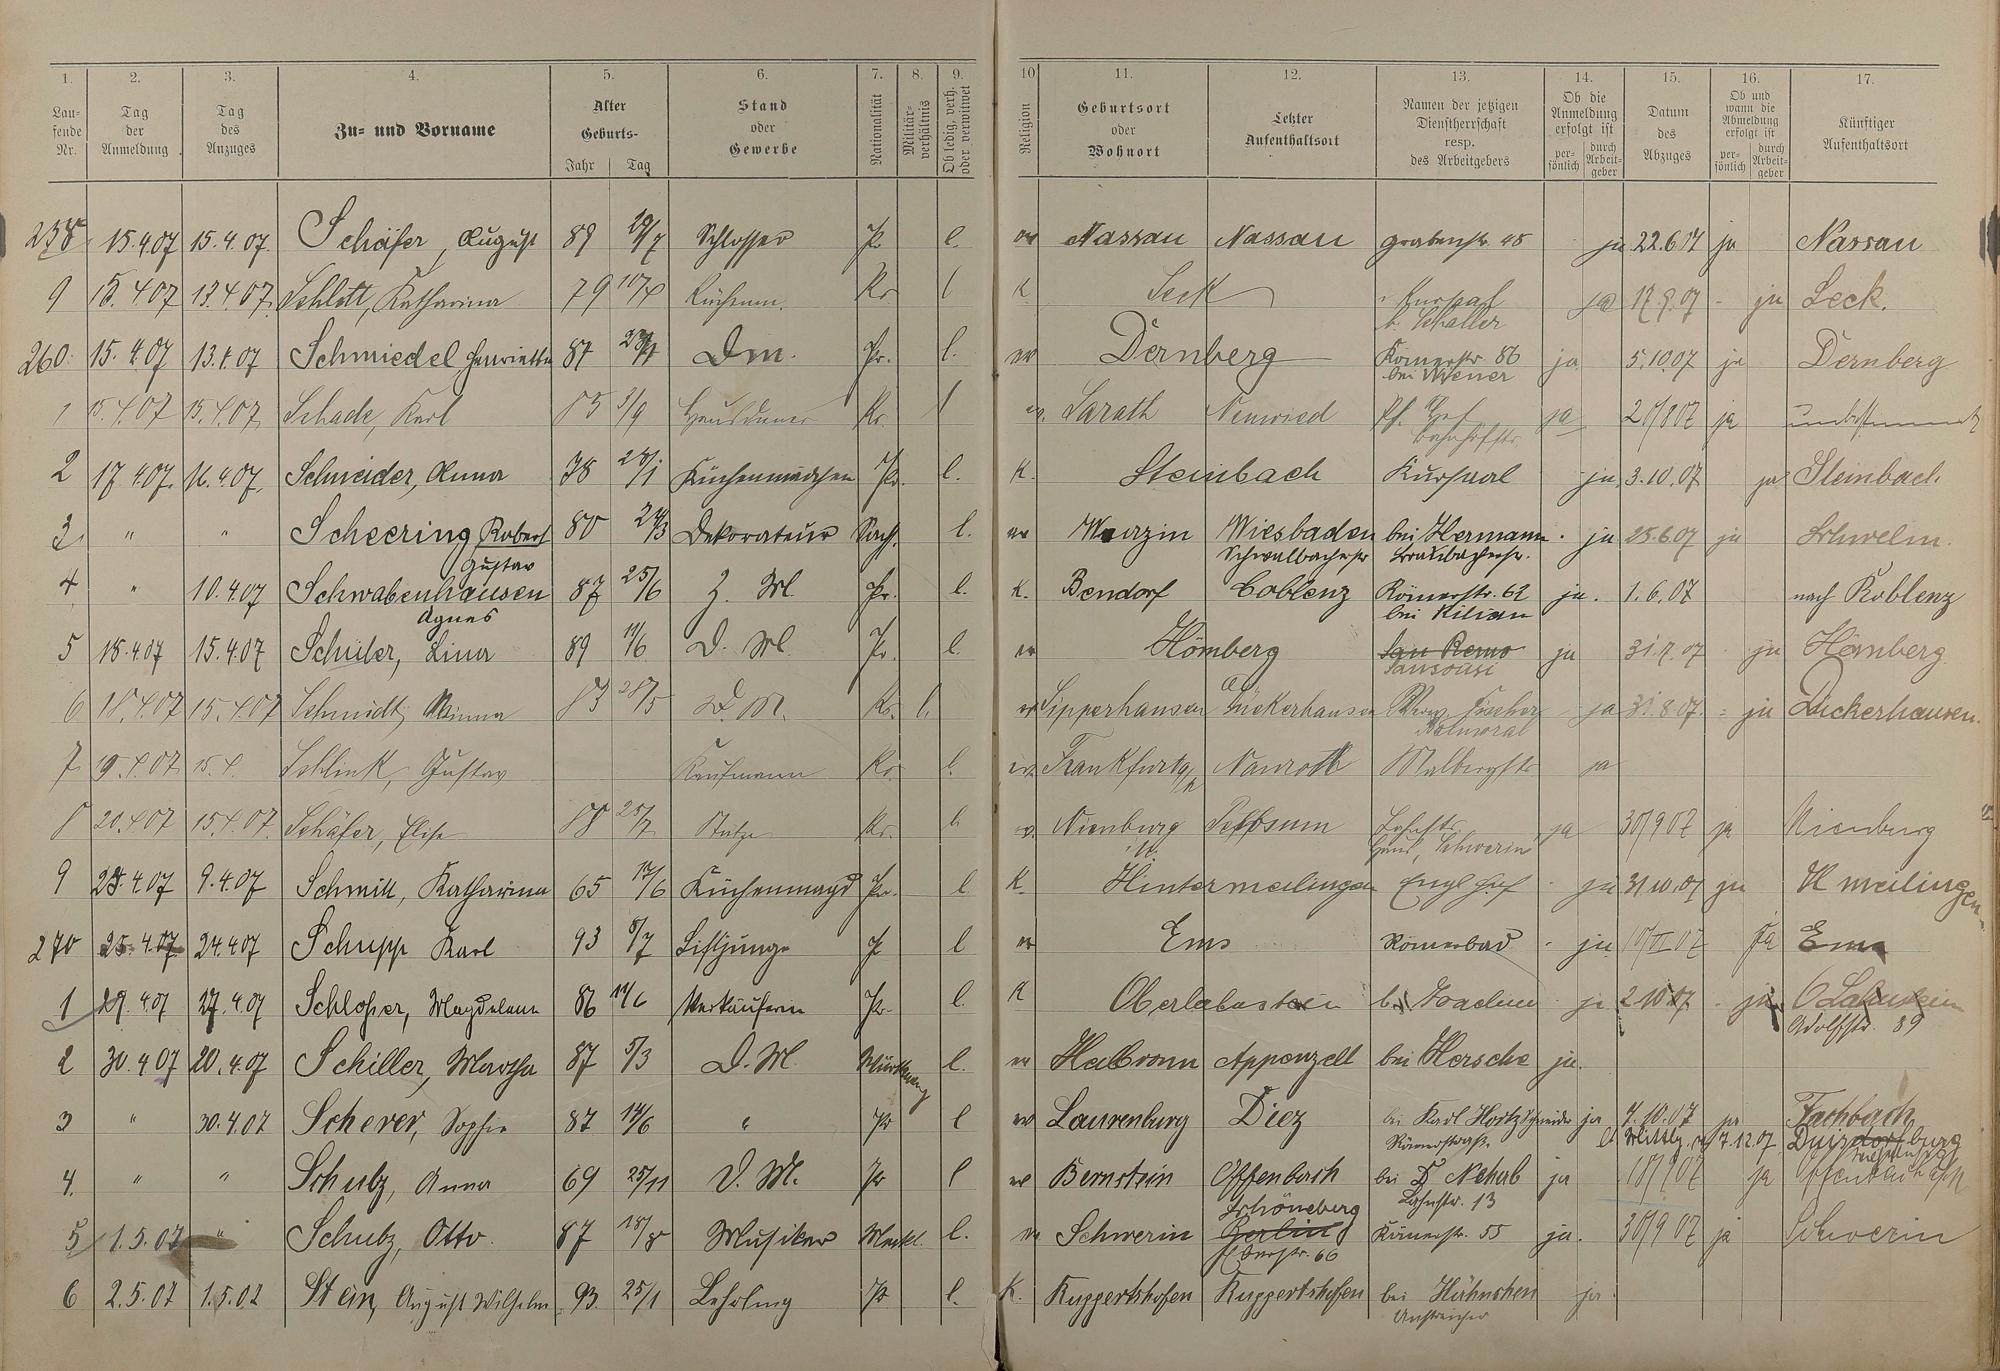 1. 2. 3. 4. 5. 6. 7. 8. 9. 10 11. 12. 13. 14. 15. 16. 17.
Lau-fende Nr. Tag der Anmeldung Tag des Anzuges Zu- und Vorname Alter Geburts- Jahr Tag Stand oder Gewerbe Nationalität Militär-verhältnis Ob ledig, verh. oder verwitwet Religion Geburtsort oder Wohnort Letzter Aufenthaltsort Namen der jetzigen Dienstherrschaft resp. des Arbeitgebers Ob die Anmeldung erfolgt ist per-sönlich durch Arbeit-geber Datum des Abzuges Ob und wann die Abmeldung erfolgt ist per-sönlich durch Arbeit-geber Künftiger Aufenthaltsort
258 15.4.07 15.4.07. Schäfer, August 89 Schlosser Pr l. ev Nassau Nassau Grabenstr. 48 ja 22.6.07 ja Nassau
9 15.4.07 13.4.07. Schlott, Katharina 79 10/4 Pr. l K Seck Kursaal
b. Schaller ja 17.9.07 ja Seck.
260. 15.4.07 13.4.07 Schmiedel Henriette 87 D m. Pr. l. ev Dernberg Römerstr. 86
bei Wiener ja 5.10.07 ja Dernberg
1 15.4.07 15.4.07. Schade, Karl 85 3/9 Hausdiener Pr. l ev. Neuwied
Bahnhofstr. ja 20/8 07 ja unbestimmt
2 17.4.07. 16.4.07. Schneider, Anna 78 28/1 Küchenmädchen Pr. l. K. Steinbach Kursaal ja 3.10.07 ja Steinbach.
3 " " Scheering Robert
Gustav 80 24/3 Dekorateur Sach. l. ev Wurzin Wiesbaden
Schwalbacherstr bei Hermann
Braubacherstr. ja 25.6.07 ja Schwelm.
4 " 10.4.07 Schwabenhausen
Agnes 87 25/6 Z. M. Pr. l. K. Bendorf Coblenz Römerstr. 62
bei Kilian ja. 1.6.07 nach Koblenz
5 18.4.07 15.4.07 Schüler, Lina 89 11/6 D. M. Pr. l ev Hömberg San Remo
Sansouci ja 31.7.07 ja Hömberg
6 18.4.07 15.4.07 Schmidt, Minna 83 28/5 D. M. Pr. l. ev Sipperhausen Fischer
Balmoral ja 31.8.07. ja Dickerhausen.
7 19.4.07 15.4. Schlink, Gustav Kaufmann Pr. l. ev. Frankfurt a/M Nauroth Malbergstr ja
8 20.4.07 15.4.07. Schäfer, Elise 88 25/7 Stütze Pr. l. ev. Nienburg Lahnstr.
Haus Schwerin ja 30/9 07 ja Nienburg
9 23.4.07 9.4.07 Schmitt, Katharina 65 12/6 Küchenmagd Pr. l K. Hintermeilingen Engl Hof ja 31.10.07 ja H meilingen
270 25.4.07 24.4.07 Schupp Karl 93 8/7 Liftjunge Pr l ev Ems Römerbad ja 10/VI 07 Ja Ems
1 29.4.07 27.4.07 Schlosser, Magdalena 86 14/6 Verkäuferin Pr. l. K Oberlahnstein b. Joachim ja 2.10.07 ja O Lahnstein
Adolfstr. 89
2 30.4.07 20.4.07 Schiller, Martha 87 5/3 D. M. Württemberg l. ev Heilbronn Appenzell bei Hersche ja.
3 " 30.4.07 Scherer, Sophie 87 14/6 " Pr l ev Laurenburg Diez bei Karl Holzschneider
Römerstraße. ja 7.10.07 ja Fachbach
7.12.07. Duisburg
4. " " Schulz, Anna 69 25/11 D. M. Pr l ev Bernstein Offenbach bei Dr Nehab
Lahnstr. 13 ja 18/9 07 ja
5 1.5.07 " Schulz, Otto. 87 18/8 Musiker Meckl. l. ev Schwerin Schöneberg
Berlin
Ebersstr. 66 Römerstr. 55 ja. 30/9 07 ja Schwerin
6 2.5.07 1.5.07 Stein, August Wilhelm 93 25/1 Lehrling Pr l. K. Ruppertshofen Ruppertshofen bei Hähnchen
Anstreicher ja